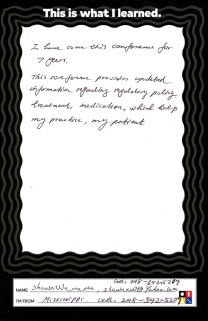 This is what I learned.
I have come this conference for
7 years.
This conference provides updated
information regarding regulatory policy
treatment, medication, which help
my practice, my patient
Cell: 248-342-5207
NAME Shawn Wu, MD, PhD
I'M FROM Mississippi. Cell: 248-342-5207